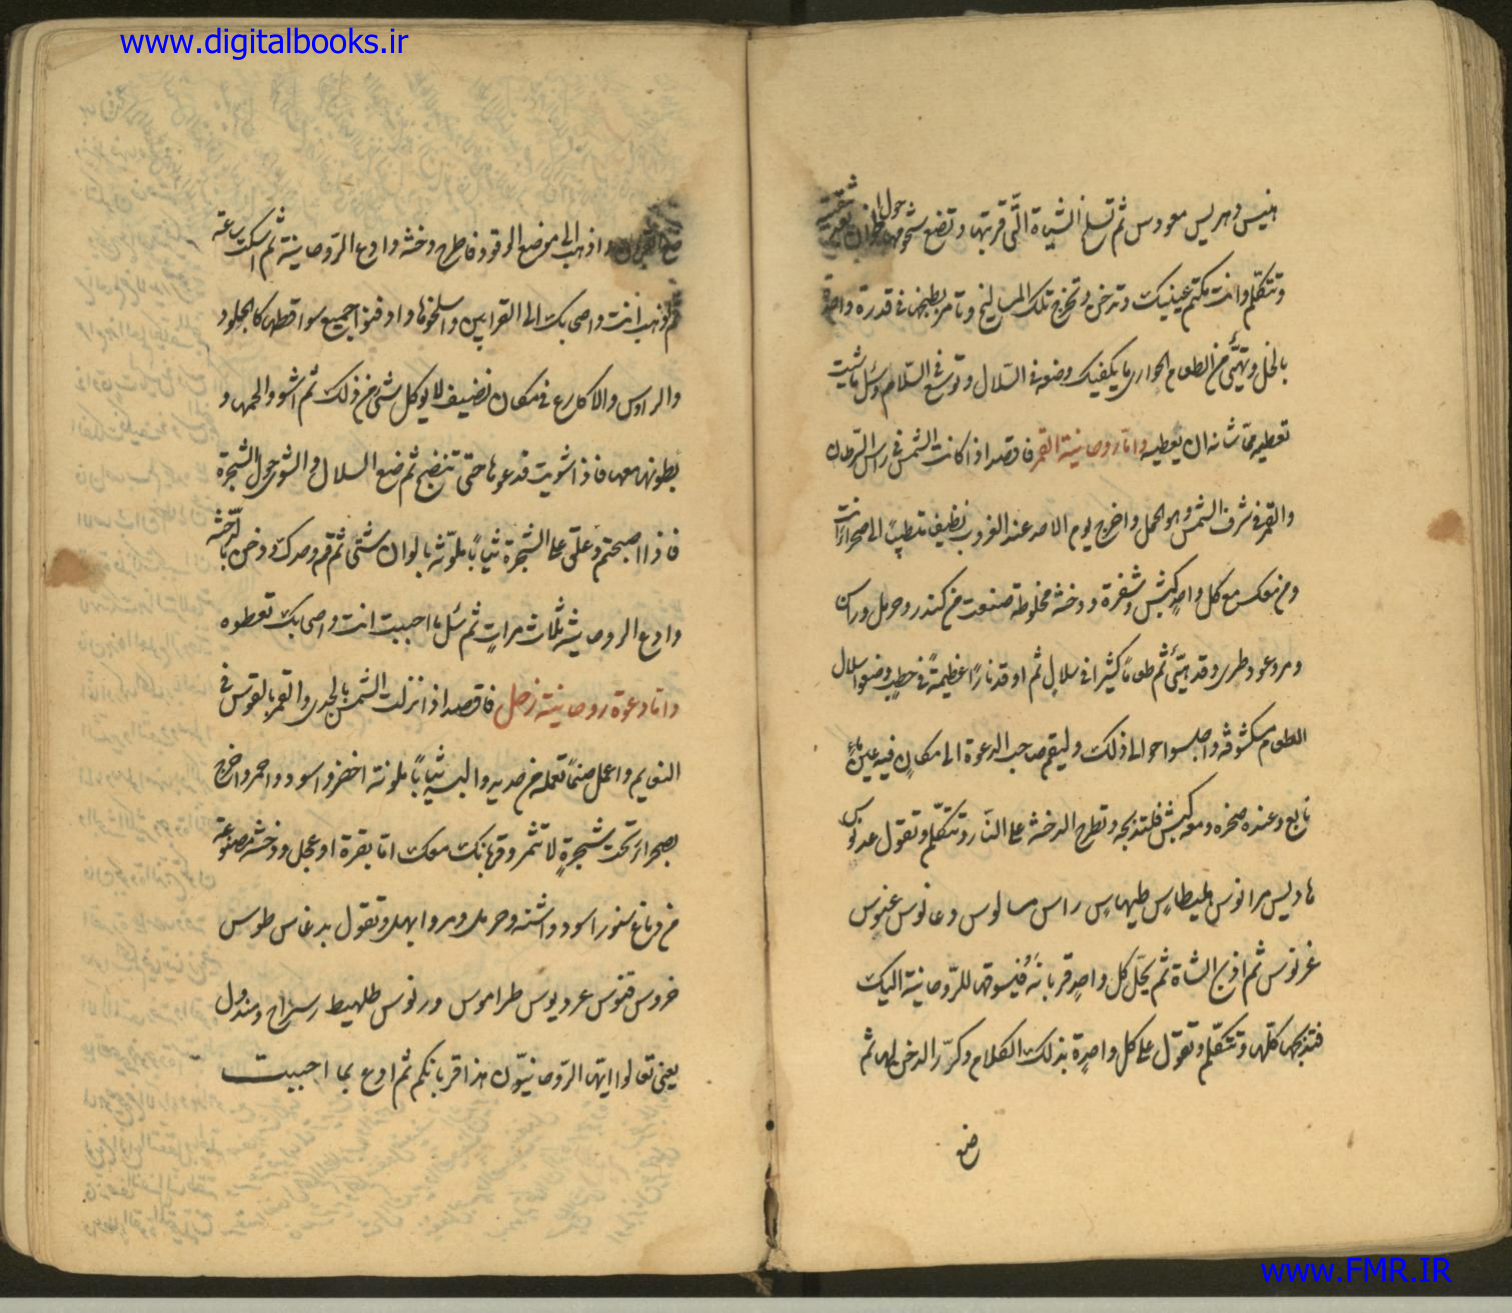 www.digitalbooks.ir
هنيس وهريس معودس ثم تسلخ الشياة التى قربتها وتضع شحومها حول الخوان
وتتكلم وانت مكتم عينيك وتدخن وتخرج تلك المساليخ وتامر بطبخها فى قدرة واحدة
بالخل ويهيّئ من الطعام الحوارى ما يكفيك وضعه فى السلال وتوسع فى السلام وسَل ما شيت
تعطيه مما شانه ان يعطيه واما روحانية القمر فاقصد اذا كانت الشمس فى راس السرطان
والقمر فى شرف الشمس وهو الحمل واخرج يوم الاحد عند الغروب نظيف متطيبًا الى صحراء انت
ومن معك مع كل واحد كبش وشفرة ودخنة مخلوطة صنعت من كندر وحرمل وراسن
ومر وعود طرى وقد هيّئ ثم طعامًا كثيرا فى سلال ثم اوقد نارًا عظيمةً فى حطب وضعوا سلال
الطعام مكشوفة واجلسوا حوالى ذلك وليقم صاحب الدعوة الى مكان فيه عين ماءٍ
نابع وعنده صخره ومعه كبش فليذبحه وتطرح الدخنة على النار وتتكلم وتقول
هاديس مرانوس مليطاس طيهاس راس مسالوس وعالوس عنوس
غرنوس ثم اذبح الشاة ثم يحلّل كل واحد قربانه فيسوقها للروحانية اليك
فتذبحها كلها وتتكلم وتقول على كل واحدة بذلك الكلام وكرّر الدخن لها ثم
ضع
واذهب الى موضع الوقود فاطرح دخنة وادع الروحانية ثم اسكت ساعة
ثم تذهب انت واصحابك الى القرابين واسلخوها وادفنوا جميع سواقطها كالجلود
والراوس والاكارع فى مكان نضيف لا يوكل شئ من ذلك ثم اشووا لحمها و
بطونها معها فاذا شويت فدعوها حتى تنضج ثم ضع السلال والشوى حول الشجرة
فاذا اصبحتم وعلق على الشجرة ثيابًا ملونة بالوان شتى ثم قم وحدك ودخن بالدخنة
وادع الروحانية ثلاث مرات ثم سَل ما احببت انت واصحابك تعطوه
واما دعوة روحانية زحل فاقصد اذا نزلت الشمس بالجدى والقمر بالقوس فى
النعايم واعمل صنمًا تعمله من حديد والبسه ثيابًا ملونة اخضر واسود واحمر واخرج
بصحراء تحت شجرةٍ لا تثمر وقربانك معك اما بقرة او عجل ودخنة مصنوعة
من دماغ سنور اسود واشنه وحرمل ومر وابهل وتقول بدغاس طوس
خروس قنوس عرديوس طراموس ورنوس طلهيط
يعنى تعالوا ايها الروحانيون هذا قربانكم ثم ادع بما احببت
www.FMR.IR